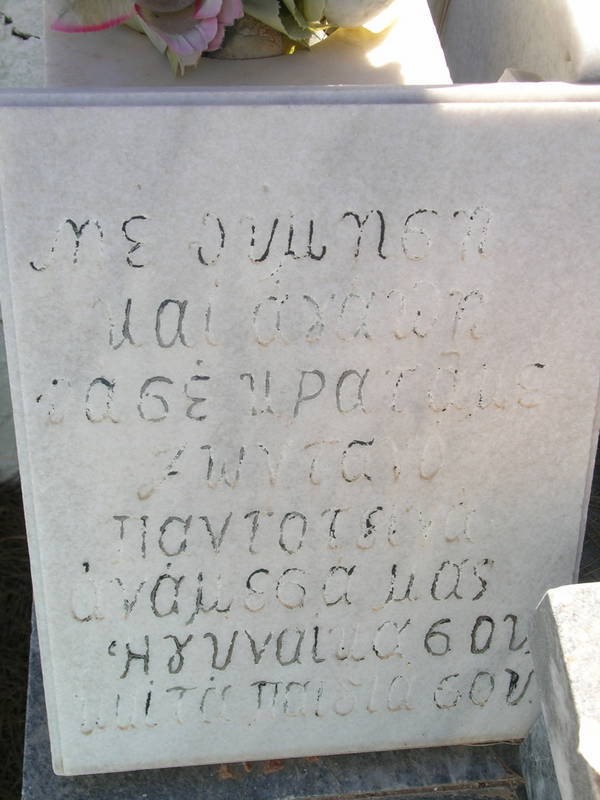 με θυμηση
και άγάπη
θα σέ κρατᾶμε
ζωντανο
παντοτεινά
ἀνάμεσά μας
Ἡ γυναικα σου
και τά παιδιά σου